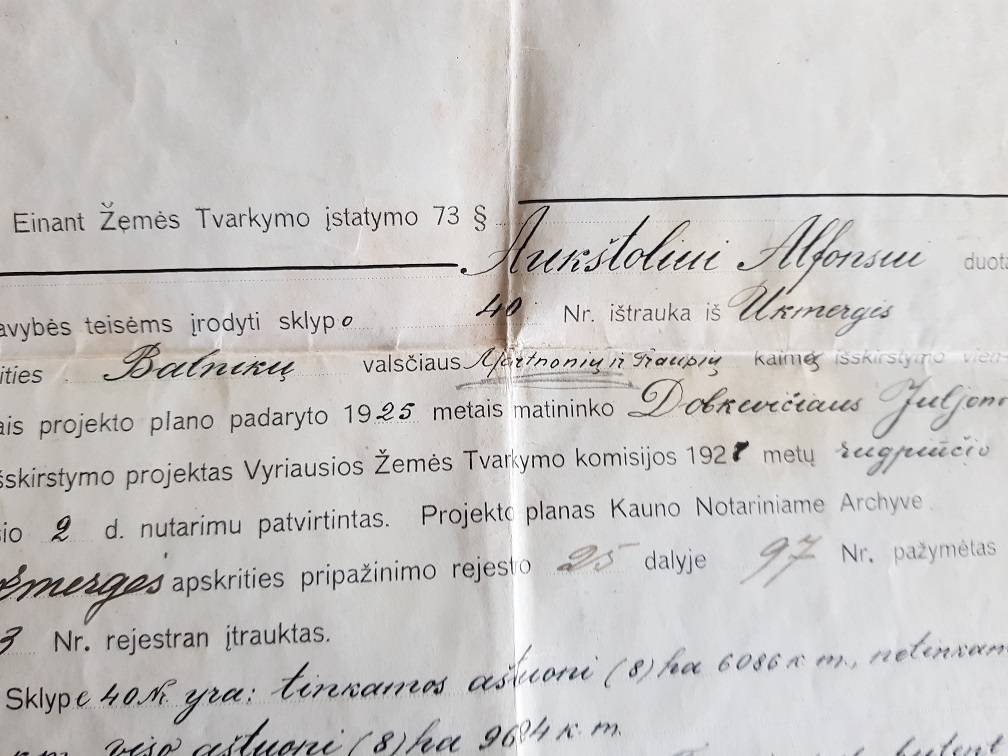 Einant Žemės Tvarkymo įstatymo 73 § Aukštoliui Alfonsui duota
avybės teisėms įrodyti sklypo 40 Nr. ištrauka iš Ukmergės
ities Balnikų valsčiaus ir Traupių kaimų išskirstymo vien
ais projekto plano padaryto 1925 metais matininko Dobkevičiaus Juljono
šskirstymo projektas Vyriausios Žemės Tvarkymo komisijos 1927 metų rugpiūčio
io 2 d. nutarimu patvirtintas. Projekto planas Kauno Notariniame Archyve
kmergės apskrities pripažinimo rejesto 25 dalyje 97 Nr. pažymėtas
3 Nr. rejestran įtrauktas.
Sklype 40 Nr yra: tinkamos aštuoni (8) ha 6086 k m., netinkam
k m. viso aštuoni (8) ha 9684 k. m.